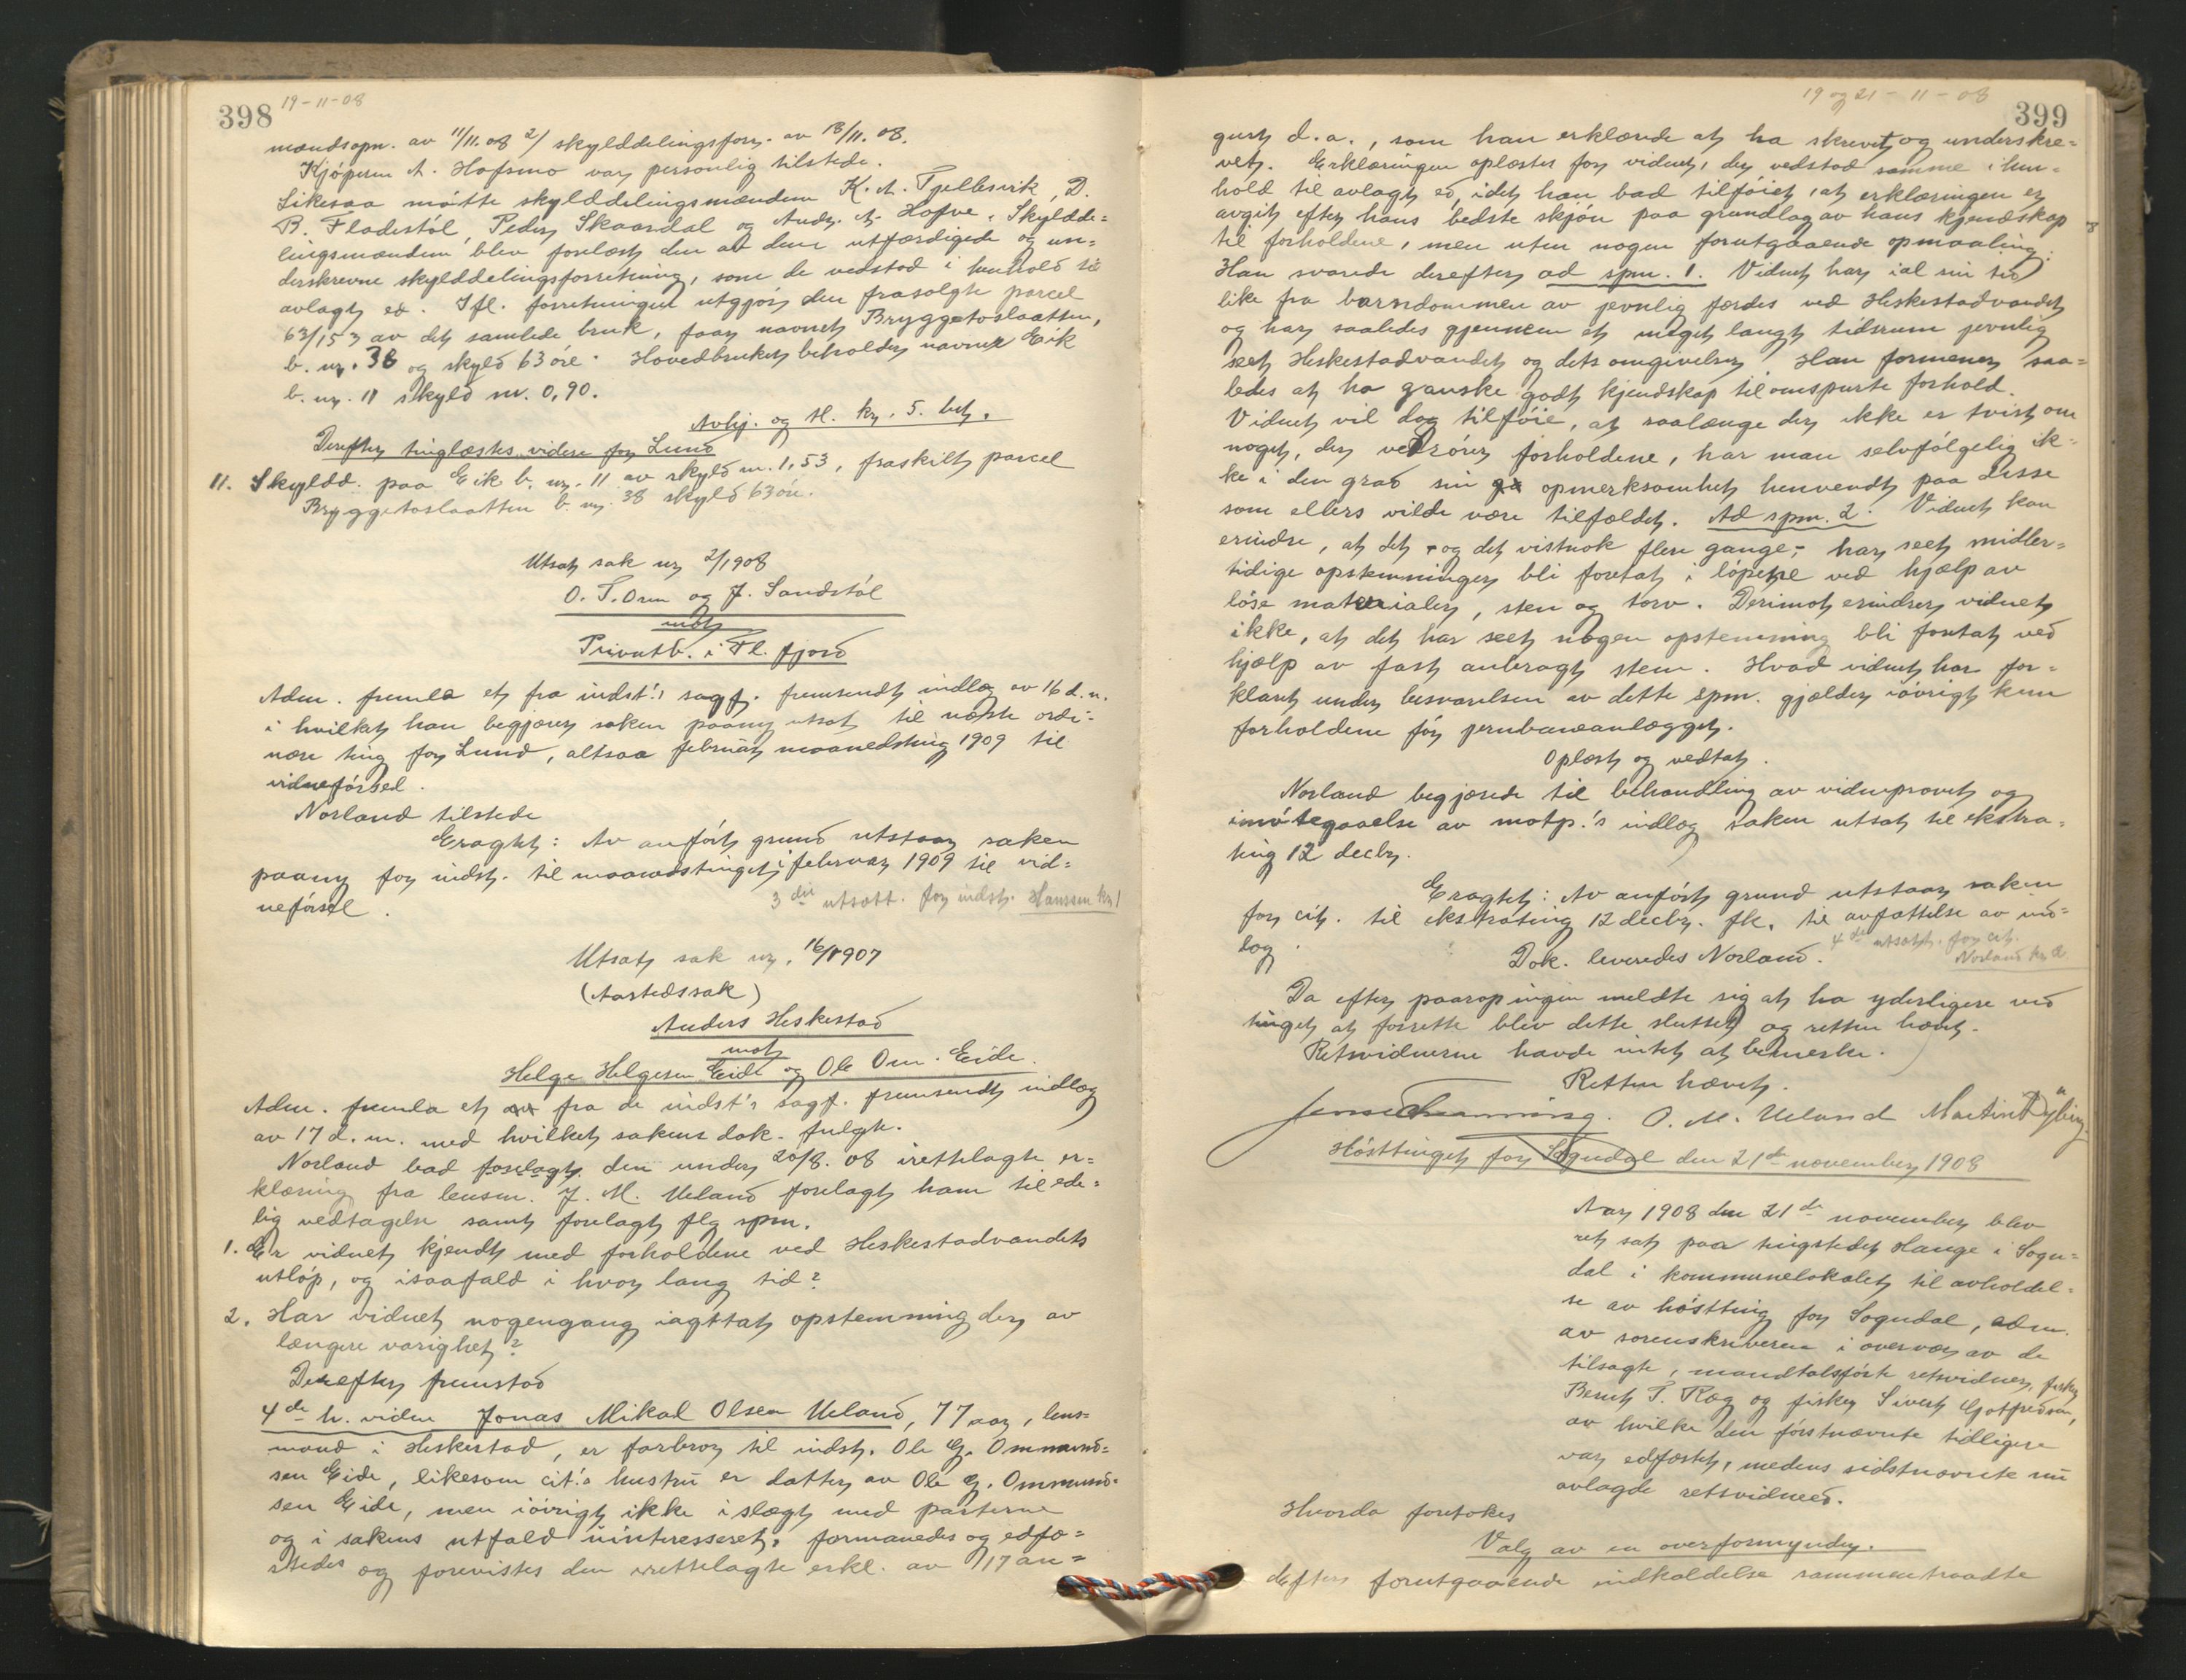 398 19-11-08
mandsopn. av 11/11.08 2/ skylddelingsforr. av 18/11.08.
Kjöperen A. Hofsmo var personlig tilstede.
Likesaa mötte skylddelingsmændene K. A. Tjellesvik, D.
B. Fladestöl, Peder Skaardal og Andr. A. Hofve. Skyldde-
lingsmændene blev forelæst den av dem utfærdigede og un-
derskrevne skylddelingsforretning, som de vedstod i henhold til
avlagt ed. Ifl. forretningen utgjör den frasolgte parcel
63/153 av det samlede bruk, faar navnet Bryggetoslaatten,
b. nr. 38 og skyld 63 öre. Hovedbruket beholder navnet Eik
b. nr. 11 skyld m. 0,90.
Avhj. og sl. kr. 5. bet.
Derefter tinglæstes videre for Lund
11. Skyldd. paa Eik b. nr. 11 av skyld m. 1,53, fraskilt parcel
Bryggetoslaatten b. nr. 38 skyld 63 öre.
Utsat sak nr 2/1908
O. T. Orre og J. Sandstöl
mot
Privatb. i Fl. fjord
Adm. fremla et fra indst.'s sagf. fremsendt indlæg av 16 d. m.
i hvilket han begjærer saken paany utsat til næste ordi-
nære ting for Lund, altsaa februar maanedsting 1909 til
vidneförsel.
Norland tilstede
Eragtet: Av anfört grund utstaar saken
paany for indst. til maanedstinget i februar 1909 til vid-
neförsel.
3die utsætt. for indst. Hanssen kr 1
Utsat sak nr. 16/1907
(Aastedssak)
Anders Heskestad
mot
Helge Helgesen Eide og Ole Om. Eide.
Adm. fremla et fra de indst's sagf. fremsendt indlæg
av 17 d. m. med hvilket sakens dok. fulgte.
Norland bad forelagt den under 20/8.08 irettelagte er-
klæring fra lensm. J. M. Ueland forelagt ham til ede-
lig vedtagelse samt forelagt flg spm.
1. Er vidnet kjendt med forholdene ved Heskestadvandets
utlöp, og isaafald i hvor lang tid?
2. Har vidnet nogengang iagttat opstemning der av
længere varighet?
Derefter fremstod
4de h. vidne Jonas Mikal Olsen Ueland, 77 aar, lens-
mand i Heskestad, er farbror til indst. Ole G. Ommund-
sen Eide, likesom cit.'s hustru er datter av Ole G. Ommund-
sen Eide, men iövrigt ikke i slægt med parterne
og i sakens utfald uinteresseret, formanedes og edfæ-
stedes og forevistes den irettelagte erkl. av 17 au-
19 og 21-11-08 399
gust d. a., som han erklærede at ha skrevet og underskre-
vet. Erklæringen oplæstes for vidnet, der vedstod samme i hen-
hold til avlagt ed, idet han bad tilföiet, at erklæringen er
avgit efter hans bedste skjön paa grundlag av hans kjendskap
til forholdene, men uten nogen forutgaaende opmaaling.
Han svarede derefter ad spm. 1. Vidnet har i al sin tid
like fra barndommen av jevnlig færdes ved Heskestadvandet
og har saaledes gjennem et meget langt tidsrum jevnlig
seet Heskestadvandet og dets omgivelser. Han formener saa-
ledes at ha ganske godt kjendskap til omspurte forhold.
Vidnet vil dog tilföie, at saalænge der ikke er tvist om
noget, der vedrörer forholdene, har man selvfölgelig ik-
ke i den grad sin opmerksomhet henvendt paa disse
som ellers vilde være tilfældet. Ad spm. 2. Vidnet kan
erindre, at det - og det vistnok flere gange - har seet midler-
tidige opstemninger bli foretat i löpene ved hjælp av
löse materialer, sten og torv. Derimot erindrer vidnet
ikke, at det har seet nogen opstemning bli foretat ved
hjælp av fast anbragt sten. Hvad vidnet har for-
klaret under besvarelsen av dette spm. gjælder iövrigt kun
forholdene för jernbaneanlægget.
Oplæst og vedtat.
Norland begjærede til behandling av vidneprovet og
imötegaaelse av motp.'s indlæg saken utsat til ekstra-
ting 12 decbr.
Eragtet: Av anfört grund utstaar saken
for cit. til ekstrating 12 decbr. fk. til avfattelse av ind-
læg.
4de utsætt. for cit.
Norland kr 2
Dok. leveredes Norland.
Da efter paarop ingen meldte sig at ha yderligere ved
tinget at forrette blev dette sluttet og retten hævet.
Retsvidnerne havde intet at bemerke.
Retten hævet.
O. M. Ueland Martin Dybing.
Hösttinget for Sogndal den 21de november 1908
Aar 1908 den 21de november blev
ret sat paa tingstedet Hauge i Sogn-
dal i kommunelokalet til avholdel-
se av hösting for Sogndal, adm.
av sorenskriveren i overvær av de
tilsagte, mandtalsförte retsvidner, fisker
Bernt T. Ræg og fisker Sivert Gotfredsen,
av hvilke den förstnævnte tidligere
var edfæstet, medens sidstnævnte nu
avlagde retsvidneed.
Hvorda foretokes
Valg av en overformynder.
Efter forutgaaende indkaldelse sammentraadte